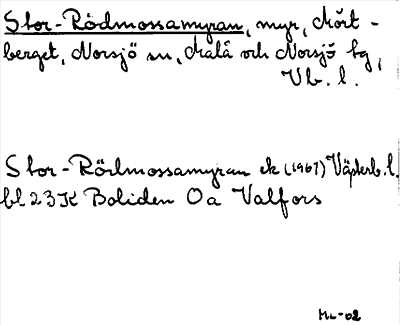 Stor-Rödmossamyran, myr, Mört-
berget, Norsjö sn, Malå och Norsjö tg,
Vb. l.
Stor-Rödmossamyran ek (1967) Västerb. l.
bl 23K Boliden 0a Valfors